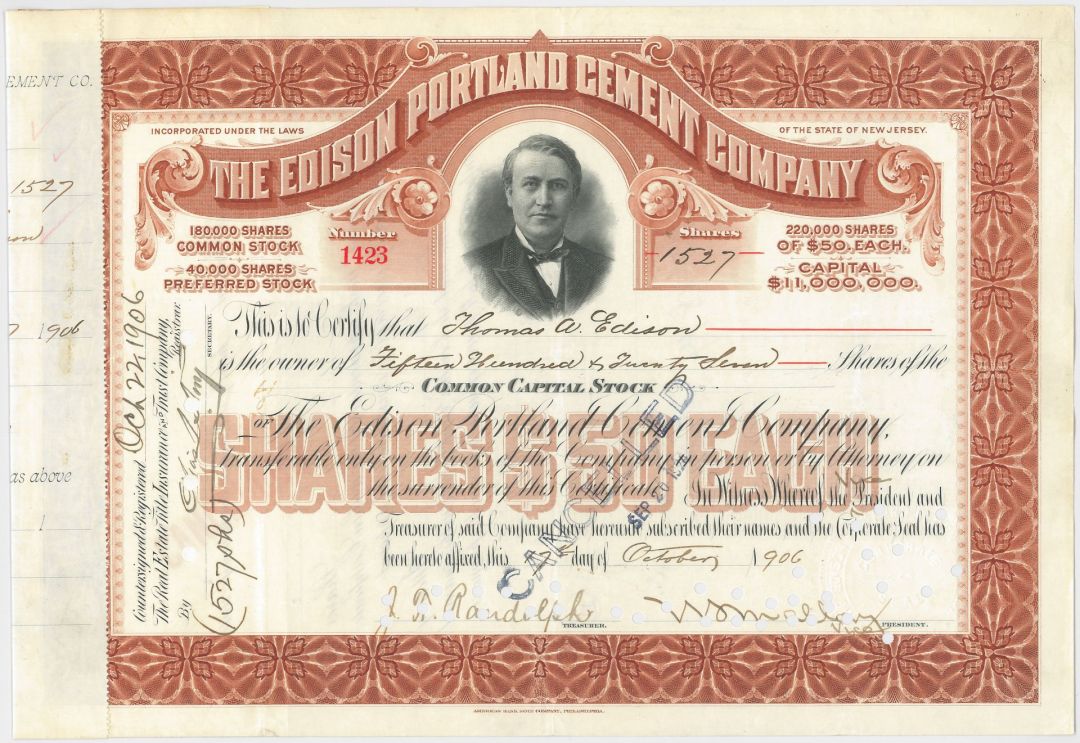 EMENT CO.
1527
1906
as above
1
THE EDISON PORTLAND CEMENT COMPANY
INCORPORATED UNDER THE LAWS
OF THE STATE OF NEW JERSEY.
180,000 SHARES
COMMON STOCK
40,000 SHARES
PREFERRED STOCK
Number
1423
Shares
1527
220,000 SHARES
OF $50. EACH.
CAPITAL
$11,000,000.
This is to Certify that Thomas A. Edison
is the owner of Fifteen Hundred & Twenty Seven Shares of the
COMMON CAPITAL STOCK
SHARES $50 EACH
OF The Edison Portland Cement Company,
transferable only on the books of the Company in person or by Attorney on
the surrender of this Certificate. In Witness Whereof, the Vice President and
Treasurer of said Company have hereunto subscribed their names and the Corporate Seal has
been hereto affixed, this day of October, 1906
CANCELLED
SEP 20
F. F. Randolph
TREASURER.
Vice PRESIDENT.
Countersigned & Registered Oct 22 1906
The Real Estate Title Insurance & Trust Company,
Registrar
By
SECRETARY.
(1527 shs)
AMERICAN BANK NOTE COMPANY, PHILADELPHIA.